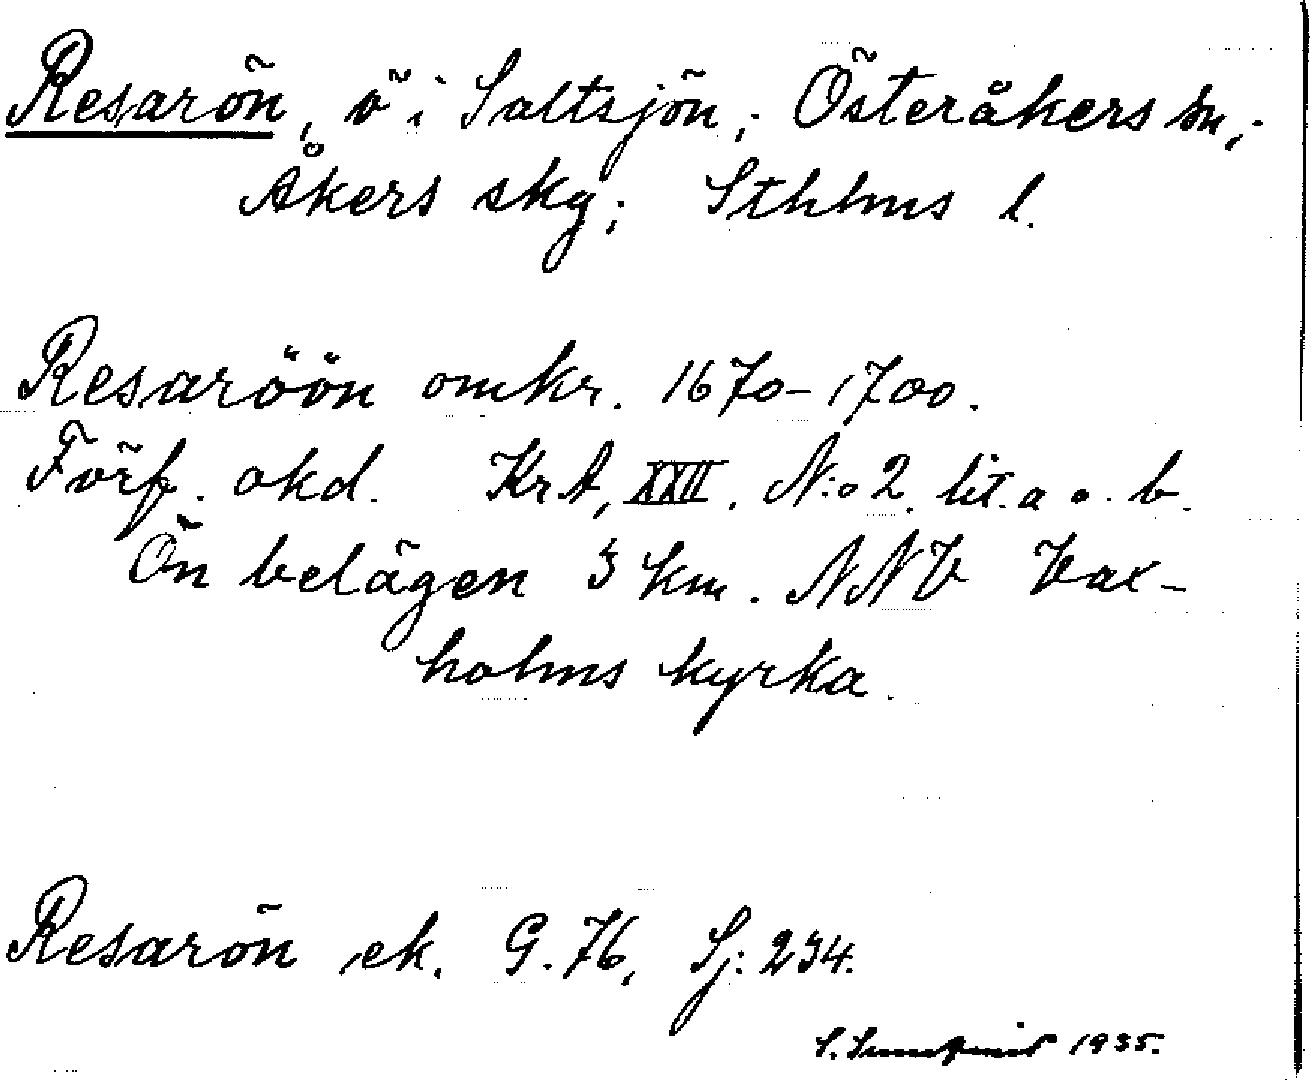 Resarön, ö i Saltsjön; Österåkers sn;
Åkers skg; Sthlms l.
Resaröön omkr. 1670-1700.
Förf. okd. KrA, XXII. N:o 2. lit. a o. b.
Ön belägen 3 km. NNV Vax-
holms kyrka.
Resarön ek. G. 76, Sj: 234.
1935.